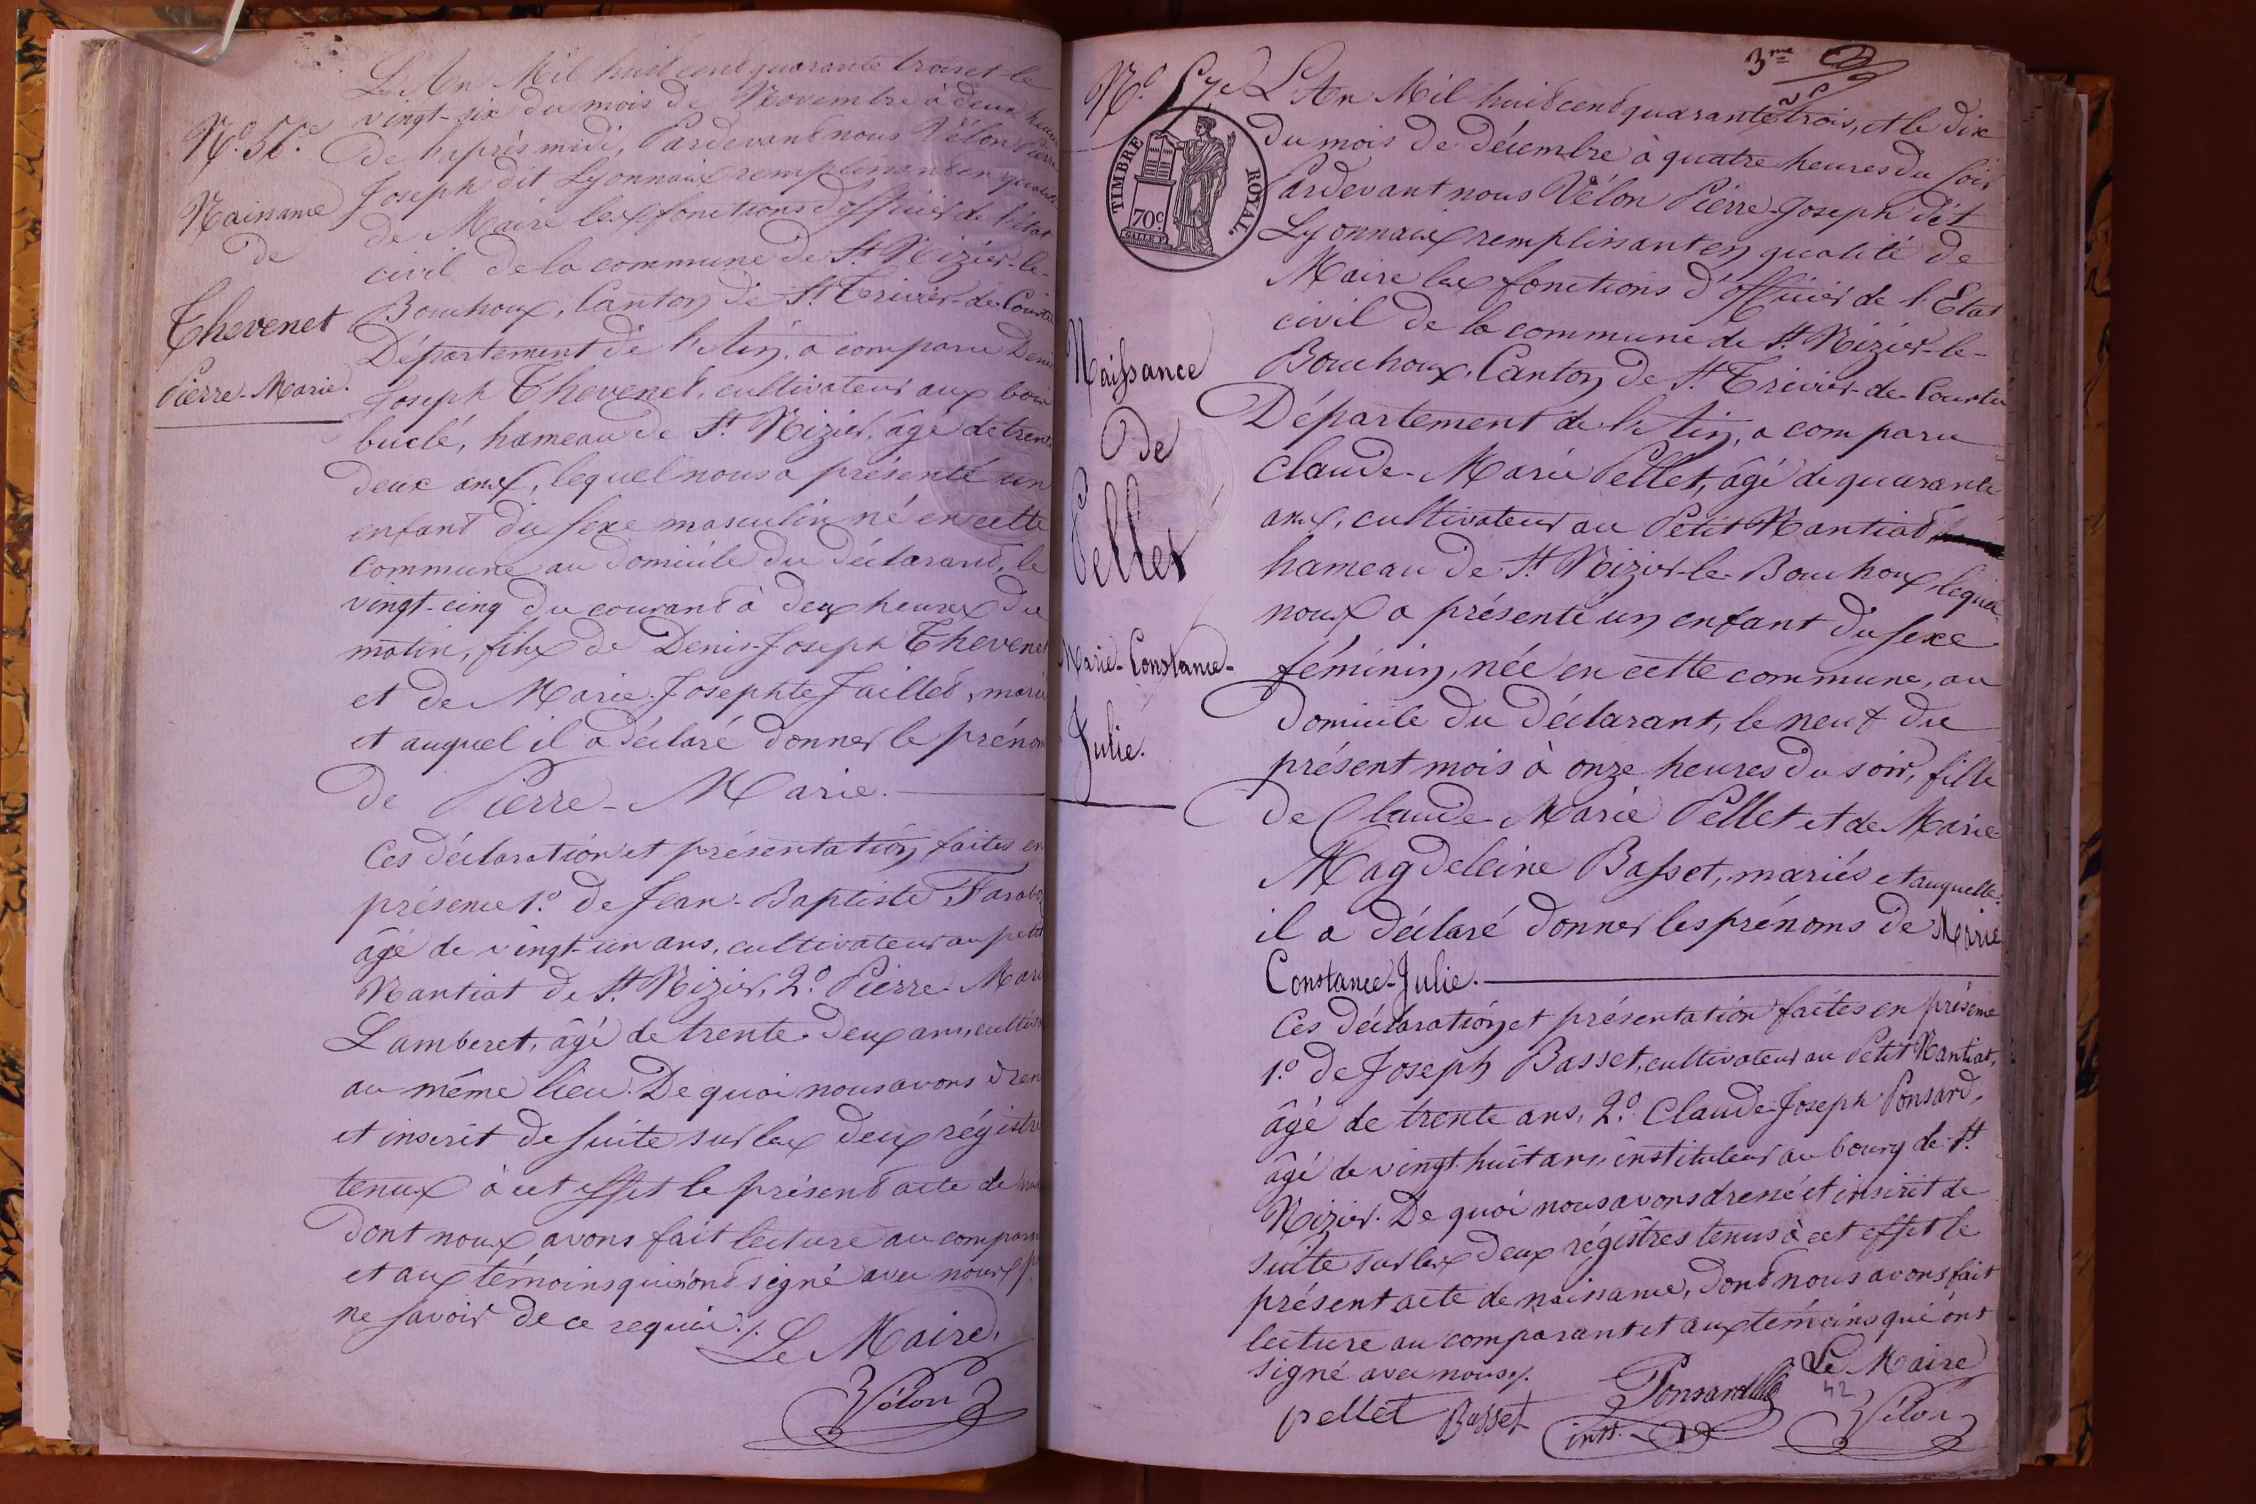 L'An Mil huit cent quarante trois et le
vingt-six du mois de Novembre à deux heures
de l'après midi, Pardevant nous Vélon Pierre
Joseph dit Lyonnais remplissant en qualité
de Maire les fonctions d'officier de l'état
civil de la commune de St Nizier-le-
Bouchoux, Canton de St Trivier-de-Courtes
Département de l'Ain, a comparu Denis
Joseph Thevenet, cultivateur aux bois
buclé, hameau de St Nizier, âgé de trente
deux ans, lequel nous a présenté un
enfant du sexe masculin né en cette
commune au domicile du déclarant, le
vingt-cinq du courant à deux heures du
matin, fils de Denis-Joseph Thevenet
et de Marie-Josephte Jaillet, mariés
et auquel il a déclaré donner le prénom
de Pierre-Marie.
Ces déclaration et présentation faites en
présence 1.° de Jean-Baptiste
âgé de vingt-un ans, cultivateur au petit
Nantiat de St Nizier, 2.° Pierre-Marie
Lamberet, âgé de trente-deux ans, cultiv
au même lieu. De quoi nous avons dressé
et inscrit de suite sur les deux régistres
tenus à cet effet le présent acte de
dont nous avons fait lecture au comparant
et aux témoins qui n'ont signé avec nous p
ne savoir de ce requis ./.
Le Maire,
Vélon
N.° 56.e
Naissance
de
Thevenet
Pierre-Marie.
3me
N.° 57.e
TIMBRE ROYAL.
70c
Naissance
De
Pellet
Marie-Constance-
Julie.
L'An Mil huit cent quarante trois, et le dix
du mois de décembre à quatre heures du soir
Pardevant nous Vélon Pierre-Joseph dit
Lyonnais remplissant en qualité de
Maire les fonctions d'officier de l'Etat
civil de la commune de St Nizier-le-
Bouchoux, Canton de St Trivier-de-Courtes
Département de l'Ain, a comparu
Claude-Marie Pellet, âgé de quarante
ans, cultivateur au Petit Nantiat
hameau de St Nizier-le-Bouchoux, lequel
nous a présenté un enfant du sexe
féminin, née en cette commune, au
domicile du déclarant, le neuf du
présent mois à onze heures du soir, fille
de Claude-Marie Pellet et de Marie
Magdeleine Basset, mariés et auquelle
il a déclaré donner les prénoms de Marie
Constance-Julie.
Ces déclaration et présentation faites en présence
1.° de Joseph Basset, cultivateur au Petit Nantiat,
âgé de trente ans, 2.° Claude-Joseph Ponsard,
âgé de vingt-huit ans, instituteur au bourg de St
Nizier. De quoi nous avons dressé et inscrit de
suite sur les deux régistres tenus à cet effet le
présent acte de naissance, dont nous avons fait
lecture au comparant et aux témoins qui ont
signé avec nous ./.
Le Maire
42
pellet Basset Ponsard
inst. Vélon